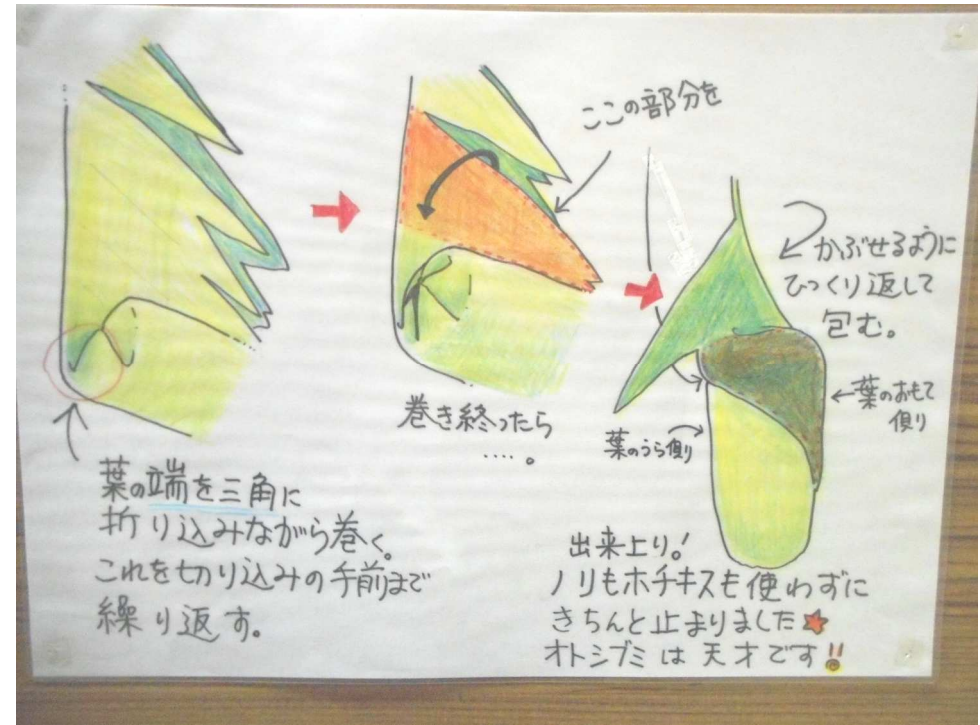 葉の端を三角に
折り込みながら巻く。
これを切り込みの手前まで
繰り返す。
巻き終ったら
‥‥。
ここの部分を
かぶせるように
ひっくり返して
包む。
←葉のおもて
側
葉のうら側
出来上り!
ノリもホチキスも使わずに
きちんと止まりました★
オトシブミは天才です!!